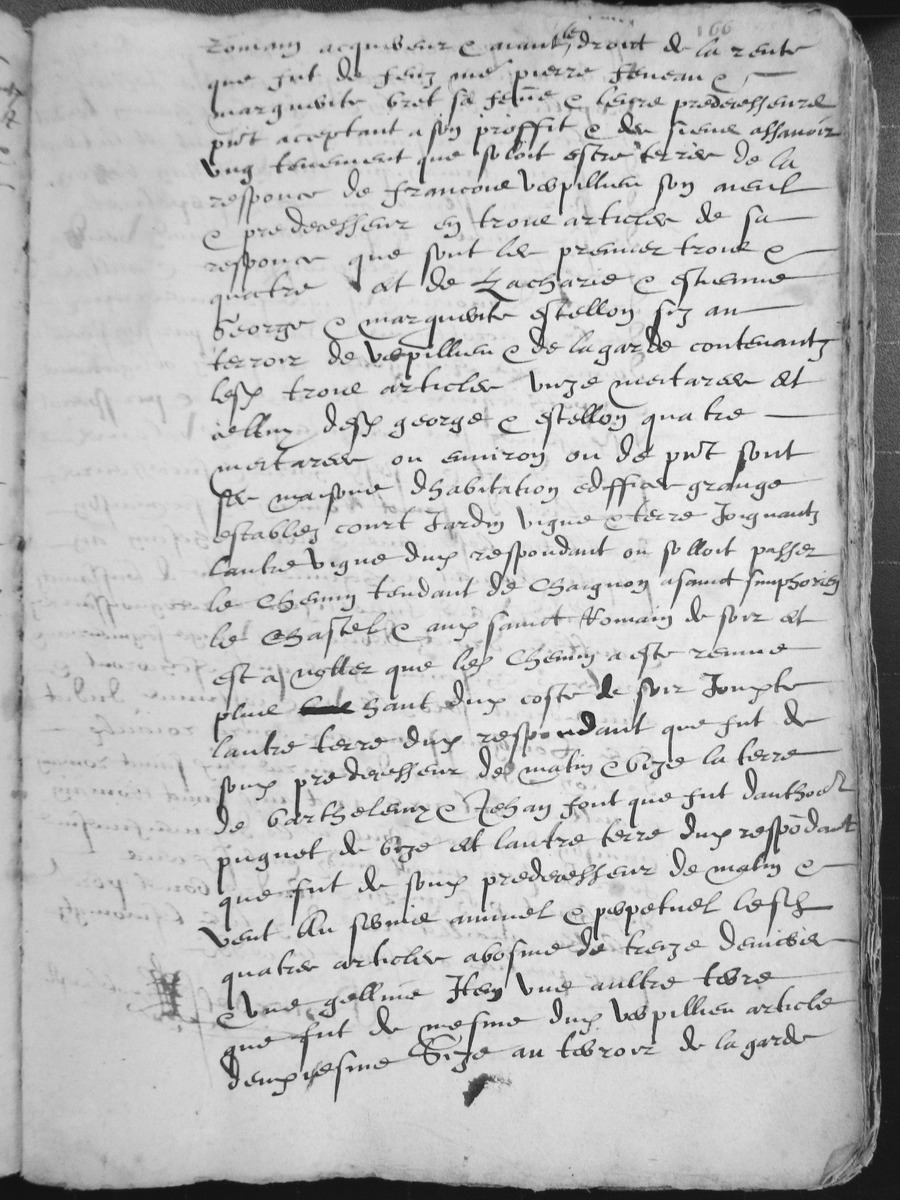 166
Romain acquereur & aiant droict de la rente
que fut de feuz me pierre feneau &
marguerite bret sa feme & leurs predecesseurs
pnt aceptant a son proffit & des siens assavoir
ung tenement que soloit estre terrier de la
responce de francois verpillieu son aieul
& predecesseur en trois articles de sa
responce que sont les premier trois &
quatre at de Zacharie & estienne
George & marguerite estellon siz au
terroir de verpillieu & de la garde contenantz
lesd trois articles unze meitarees et
celluy desd george & estellon quatre
meitarees ou environ ou de pnt sont
ses maisons dhabitation edffices grange
establez court Jardin vigne & terre Joignantz
lautre vigne dud respondant ou solloit passer
le Chemin tendant de Chaignon a sainct simphorien
le Chastel & aux sainct Romain de soir et
est a notter que led Chemin a este remue
plus hault dud coste de soir Jouxte
lautre terre dud respondant que fut de
sond predecesseur de matin & bize la terre
de barthelemy & Jehan font que fut danthoe
puguet de bize et lautre terre dud respondant
que fut de sond predecesseur de matin &
vent Au servis annuel & perpetuel lesd
quatre articles abosme de treize deniers
& une gelline Item une aultre terre
que fut de mesme dud verpillieu article
deuxiesme Size au terroir de la garde